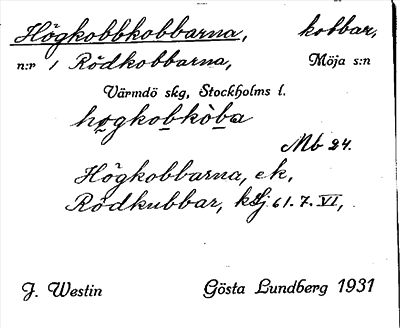 Högkobbkobbarna, kobbar,
n:r 1 Rödkobbarna, Möja s:n
Värmdö skg, Stockholms l.
hogkobkòba
Mb 24.
Högkobbarna, ek,
Rödkubbar, ksj 61.7.VI,
J. Westin Gösta Lundberg 1931